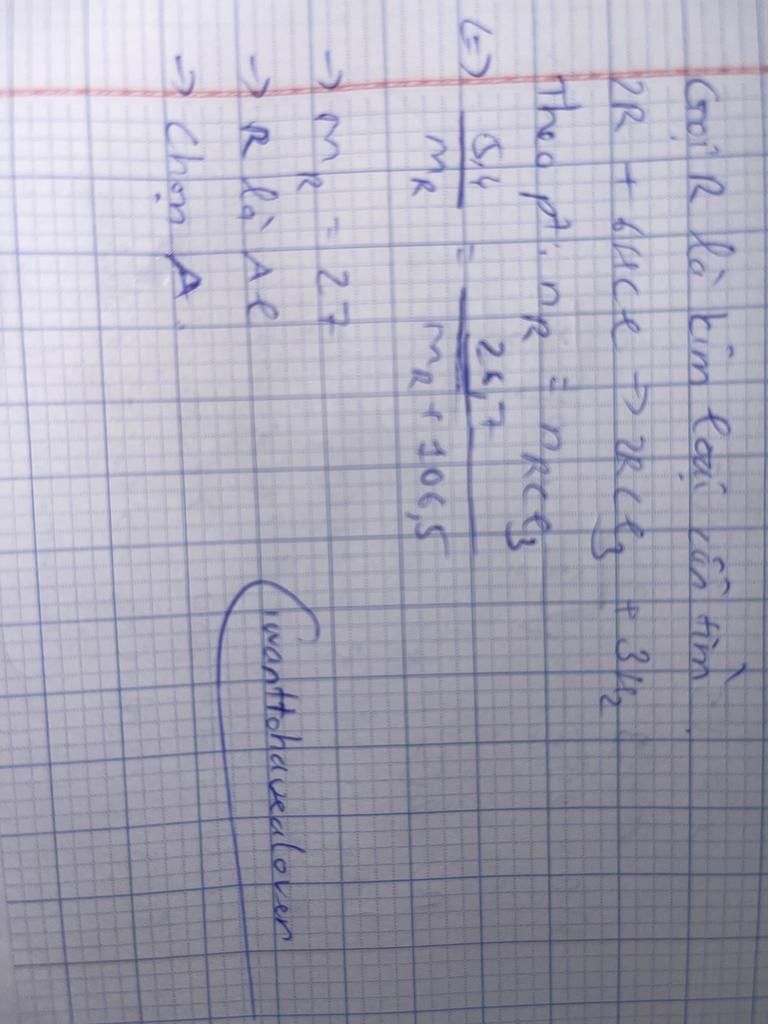 Gọi R là kim loại cần tìm
2R + 6HCl → 2RCl₃ + 3H₂
Theo pt: nR = nRCl₃
(=) 5,4/MR = 26,7/MR + 106,5
→ MR = 27
→ R là Al
→ Chọn A.
iwanttohavealover